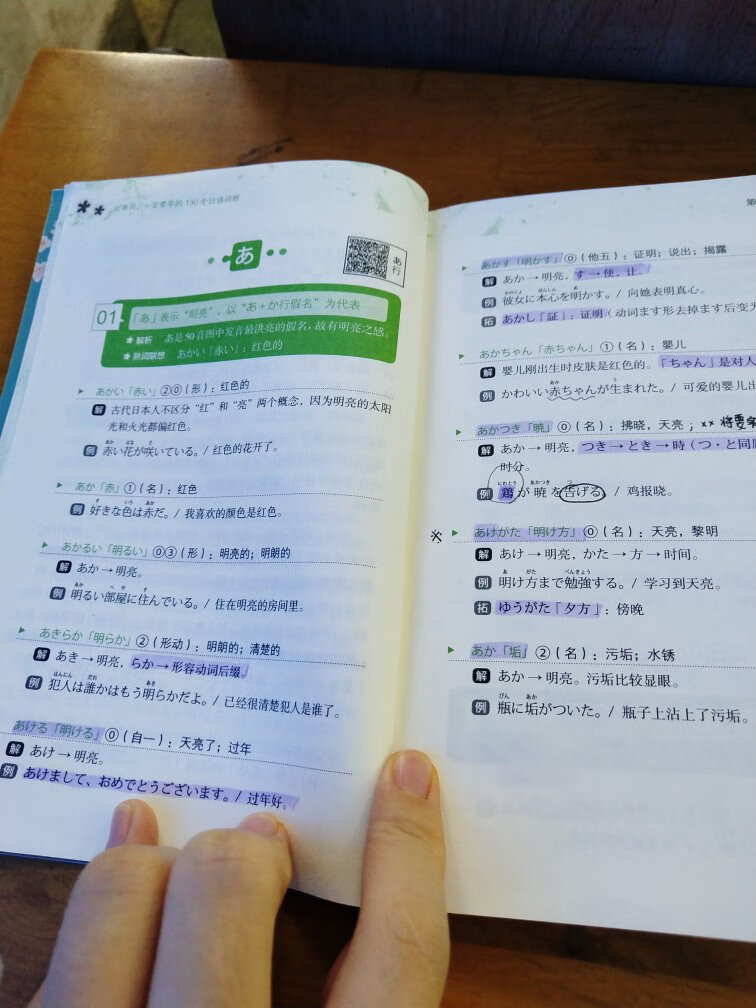 记单词，一定要学的 330 个日语词根
あ
あ行
01 「あ」表示“明亮”，以“あ+か行假名”为代表
★ 解析 あ是50音图中发音最洪亮的假名，故有明亮之感。
★ 熟词联想 あかい「赤い」：红色的
あかい「赤い」②⓪（形）：红色的
解 古代日本人不区分“红”和“亮”两个概念，因为明亮的太阳
光和火光都偏红色。
あか はな さ
例 赤い花が咲いている。/ 红色的花开了。
あか「赤」①（名）：红色
す いろ あか
例 好きな色は赤だ。/ 我喜欢的颜色是红色。
あかるい「明るい」⓪③（形）：明亮的；明朗的
解 あか → 明亮。
あか へや す
例 明るい部屋に住んでいる。/ 住在明亮的房间里。
あきらか「明らか」②（形动）：明朗的；清楚的
解 あき → 明亮，らか → 形容动词后缀。
はんにん だれ あき
例 犯人は誰かはもう明らかだよ。/ 已经很清楚犯人是谁了。
あける「明ける」⓪（自一）：天亮了；过年
解 あけ → 明亮。
例 あけまして、おめでとうございます。/ 过年好。
第
あかす「明かす」⓪（他五）：证明；说出；揭露
解 あか → 明亮，す → 使，让。
かのじょ ほんしん あ
例 彼女に本心を明かす。/ 向她表明真心。
拓 あかし「証」：证明（动词ます形去掉ます后变为
あかちゃん「赤ちゃん」①（名）：婴儿
解 婴儿刚出生时皮肤是红色的。「ちゃん」是对人
例 かわいい赤ちゃんが生まれた。/ 可爱的婴儿出
あかつき「暁」⓪（名）：拂晓，天亮；×× 将要
解 あか → 明亮，つき → とき → 時（つ・と同
时分。
にわとり あかつき つ
例 鶏が暁を告げる。/ 鸡报晓。
※
あけがた「明け方」⓪（名）：天亮，黎明
解 あけ → 明亮，かた → 方 → 时间。
あ がた べんきょう
例 明け方まで勉強する。/ 学习到天亮。
拓 ゆうがた「夕方」：傍晚
あか「垢」②（名）：污垢；水锈
解 あか → 明亮。污垢比较显眼。
びん あか
例 瓶に垢がついた。/ 瓶子上沾上了污垢。